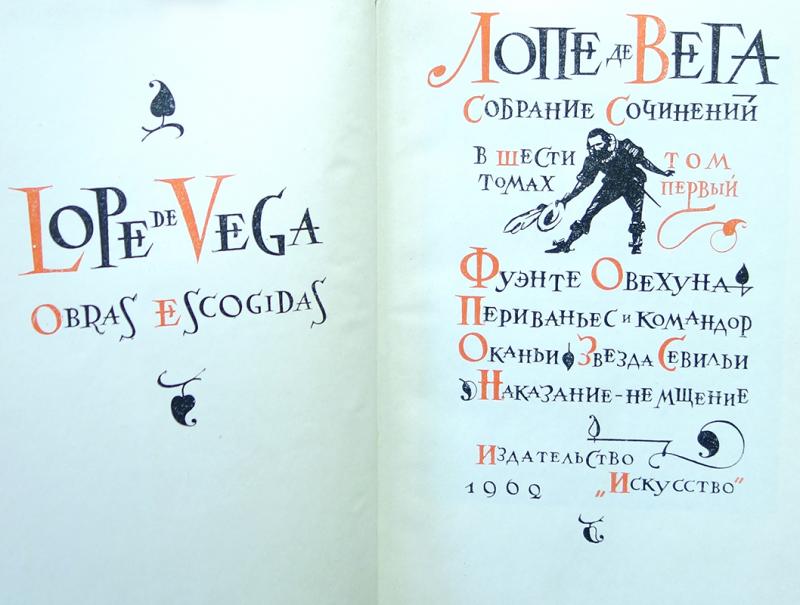 LOPE DE VEGA
OBRAS ESCOGIDAS
ЛОПЕ ДЕ ВЕГА
СОБРАНИЕ СОЧИНЕНИЙ
В ШЕСТИ
ТОМАХ
ТОМ
ПЕРВЫЙ
ФУЭНТЕ ОВЕХУНА
ПЕРИВАНЬЕС И КОМАНДОР
ОКАНЬИ ЗВЕЗДА СЕВИЛЬИ
НАКАЗАНИЕ-НЕ МЩЕНИЕ
ИЗДАТЕЛЬСТВО
1962 „ИСКУССТВО"